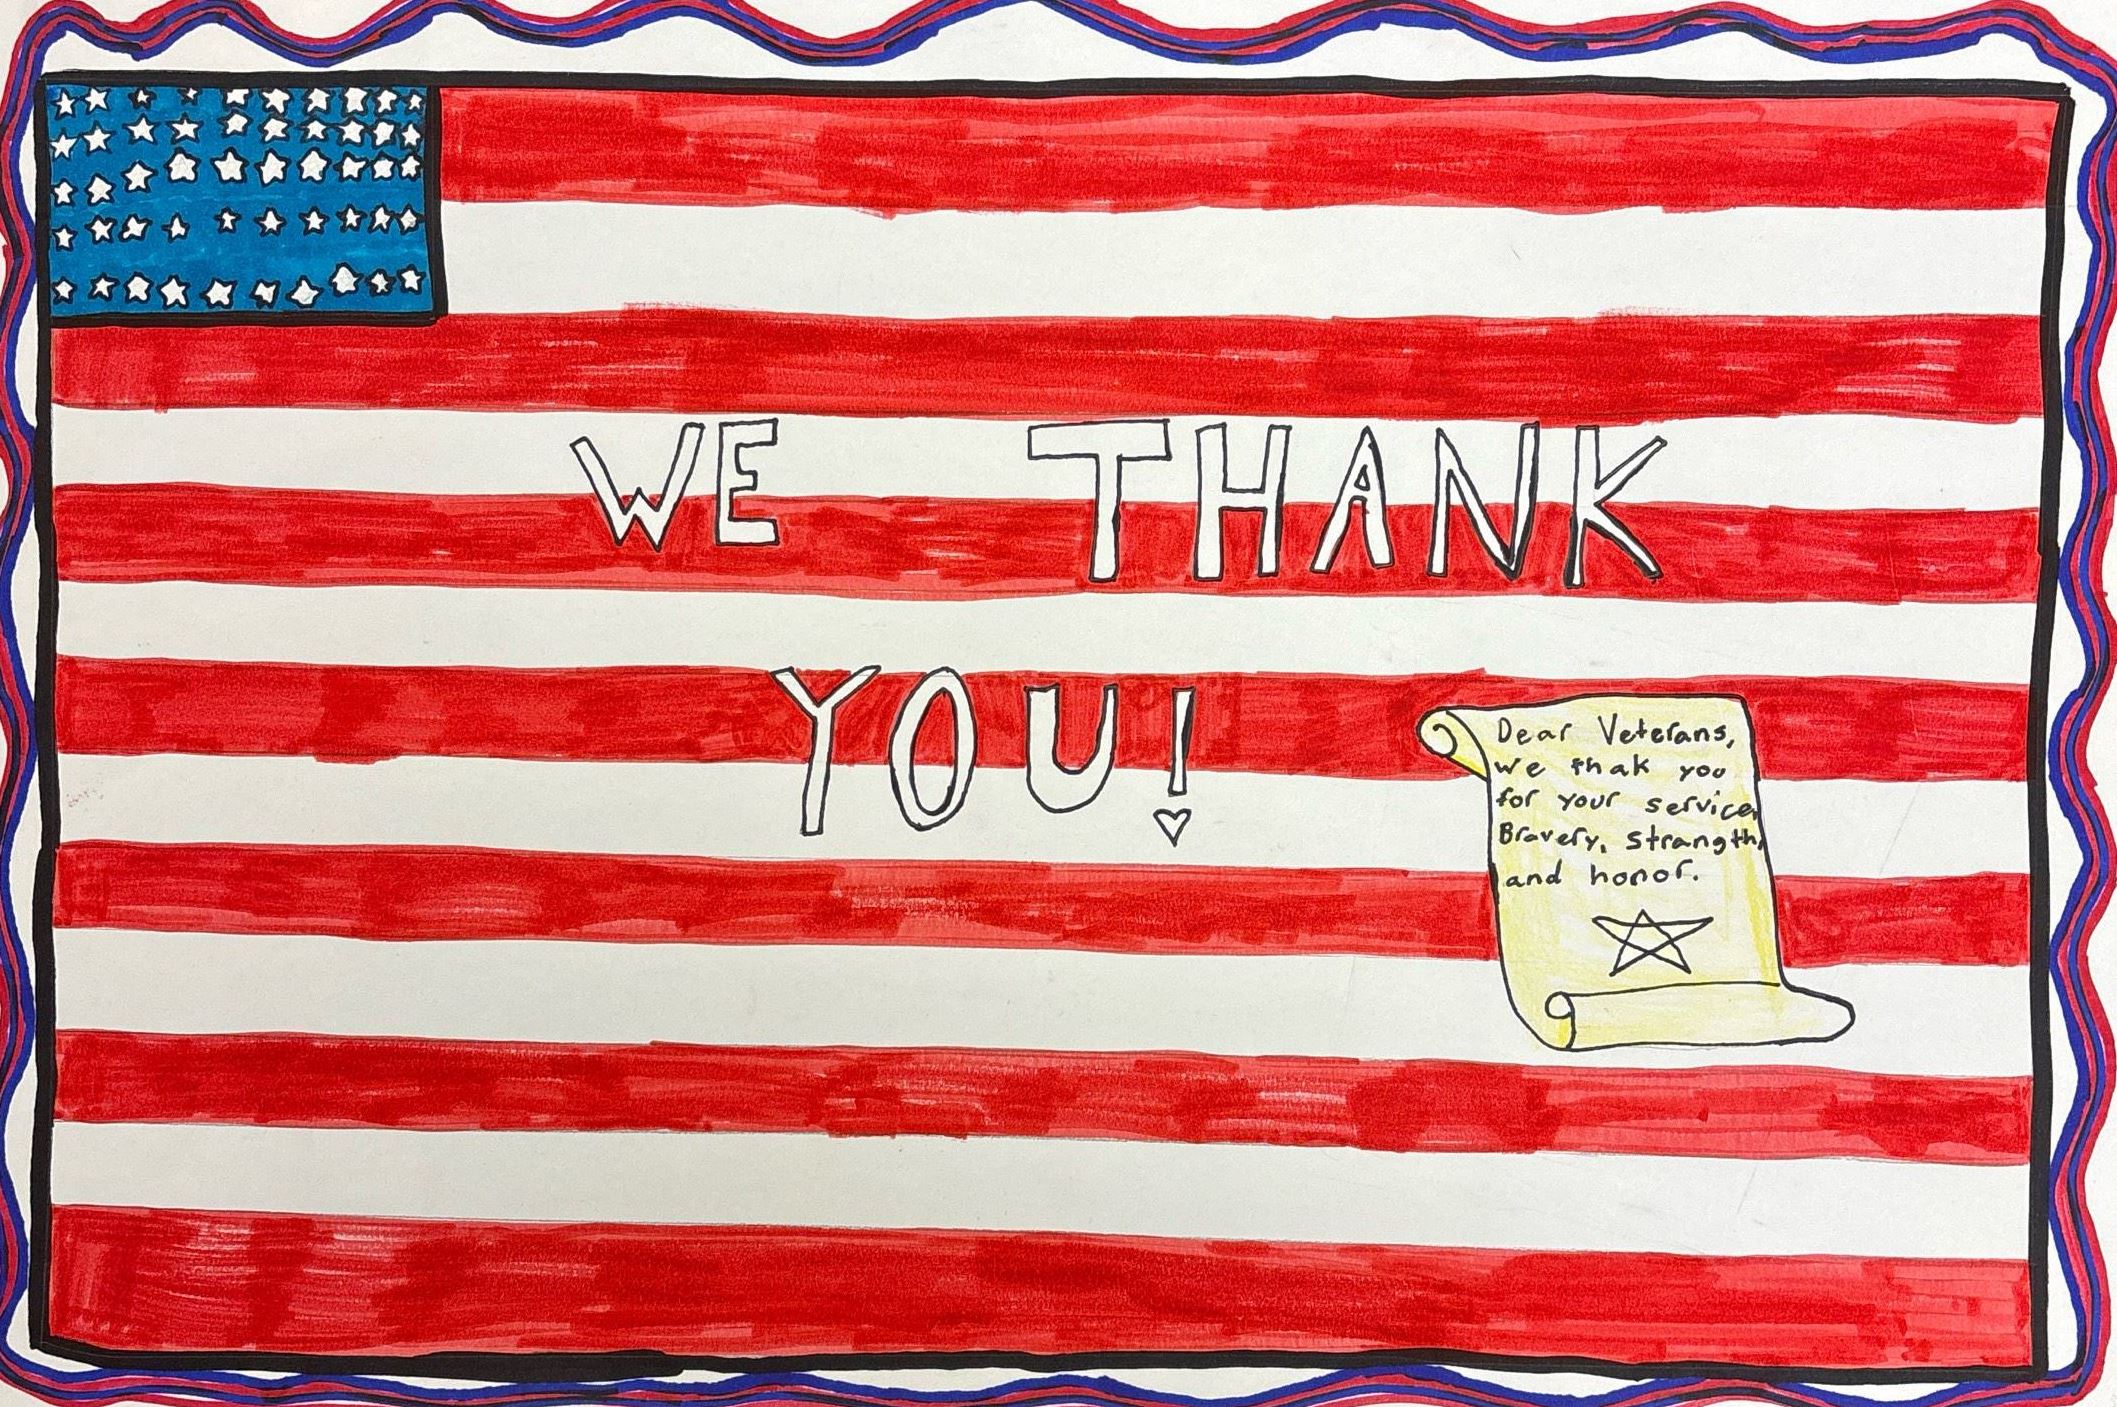 WE THANK
YOU!
Dear Veterans,
we thak you
for your service,
Bravery, strangth,
and honor.